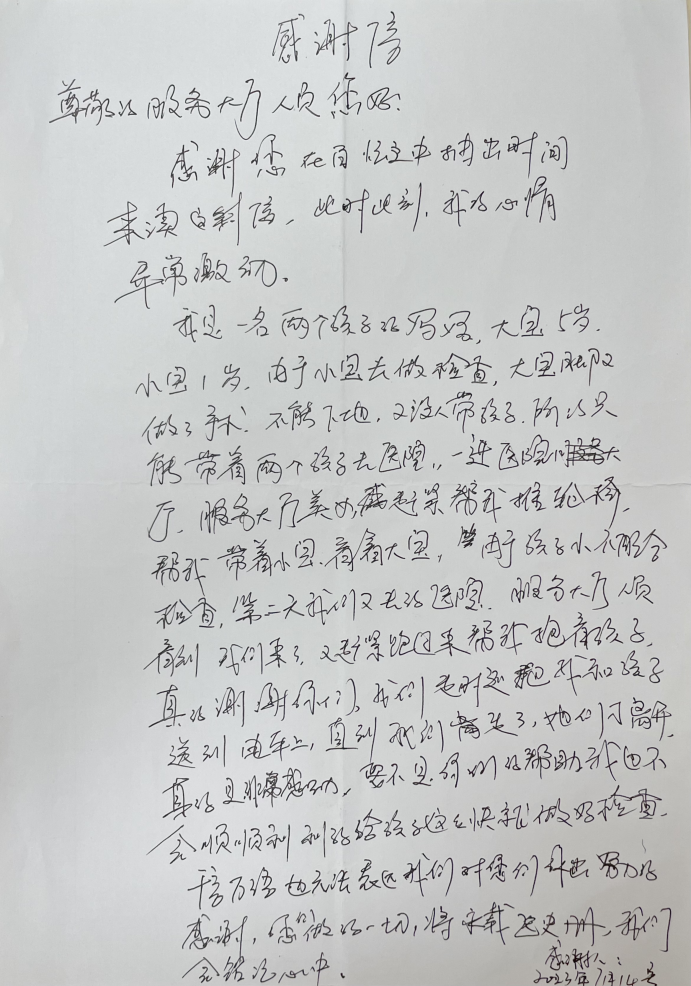 感谢信
尊敬的服务大厅人员您好:
感谢您在百忙之中抽出时间
来读这封信,此时此刻,我的心情
异常激动。
我是一名两个孩子的妈妈,大宝5岁.
小宝1岁.由于小宝去做检查,大宝脚又
做了手术.不能下地,又没人带孩子.所以只
能带着两个孩子去医院,一进医院
厅.服务大厅美女赶紧帮我推轮椅,
帮我带着小宝.看着大宝,由于孩子小不配合
检查,第二天我们又去的医院.服务大厅人员
看到我们来了,又赶紧跑过来帮我抱着孩子.
真的谢谢你们,我们走时还把我和孩子
送到电车上,直到我们走了,她们才离开
真的是非常感动,要不是你们的帮助我也不
会顺顺利利的给孩子这么快就做好检查.
千言万语也无法表达我们对您们付出努力的
感谢,您做的一切,将永载史册,我们
会铭记心中.
感谢人:
2023年7月14号